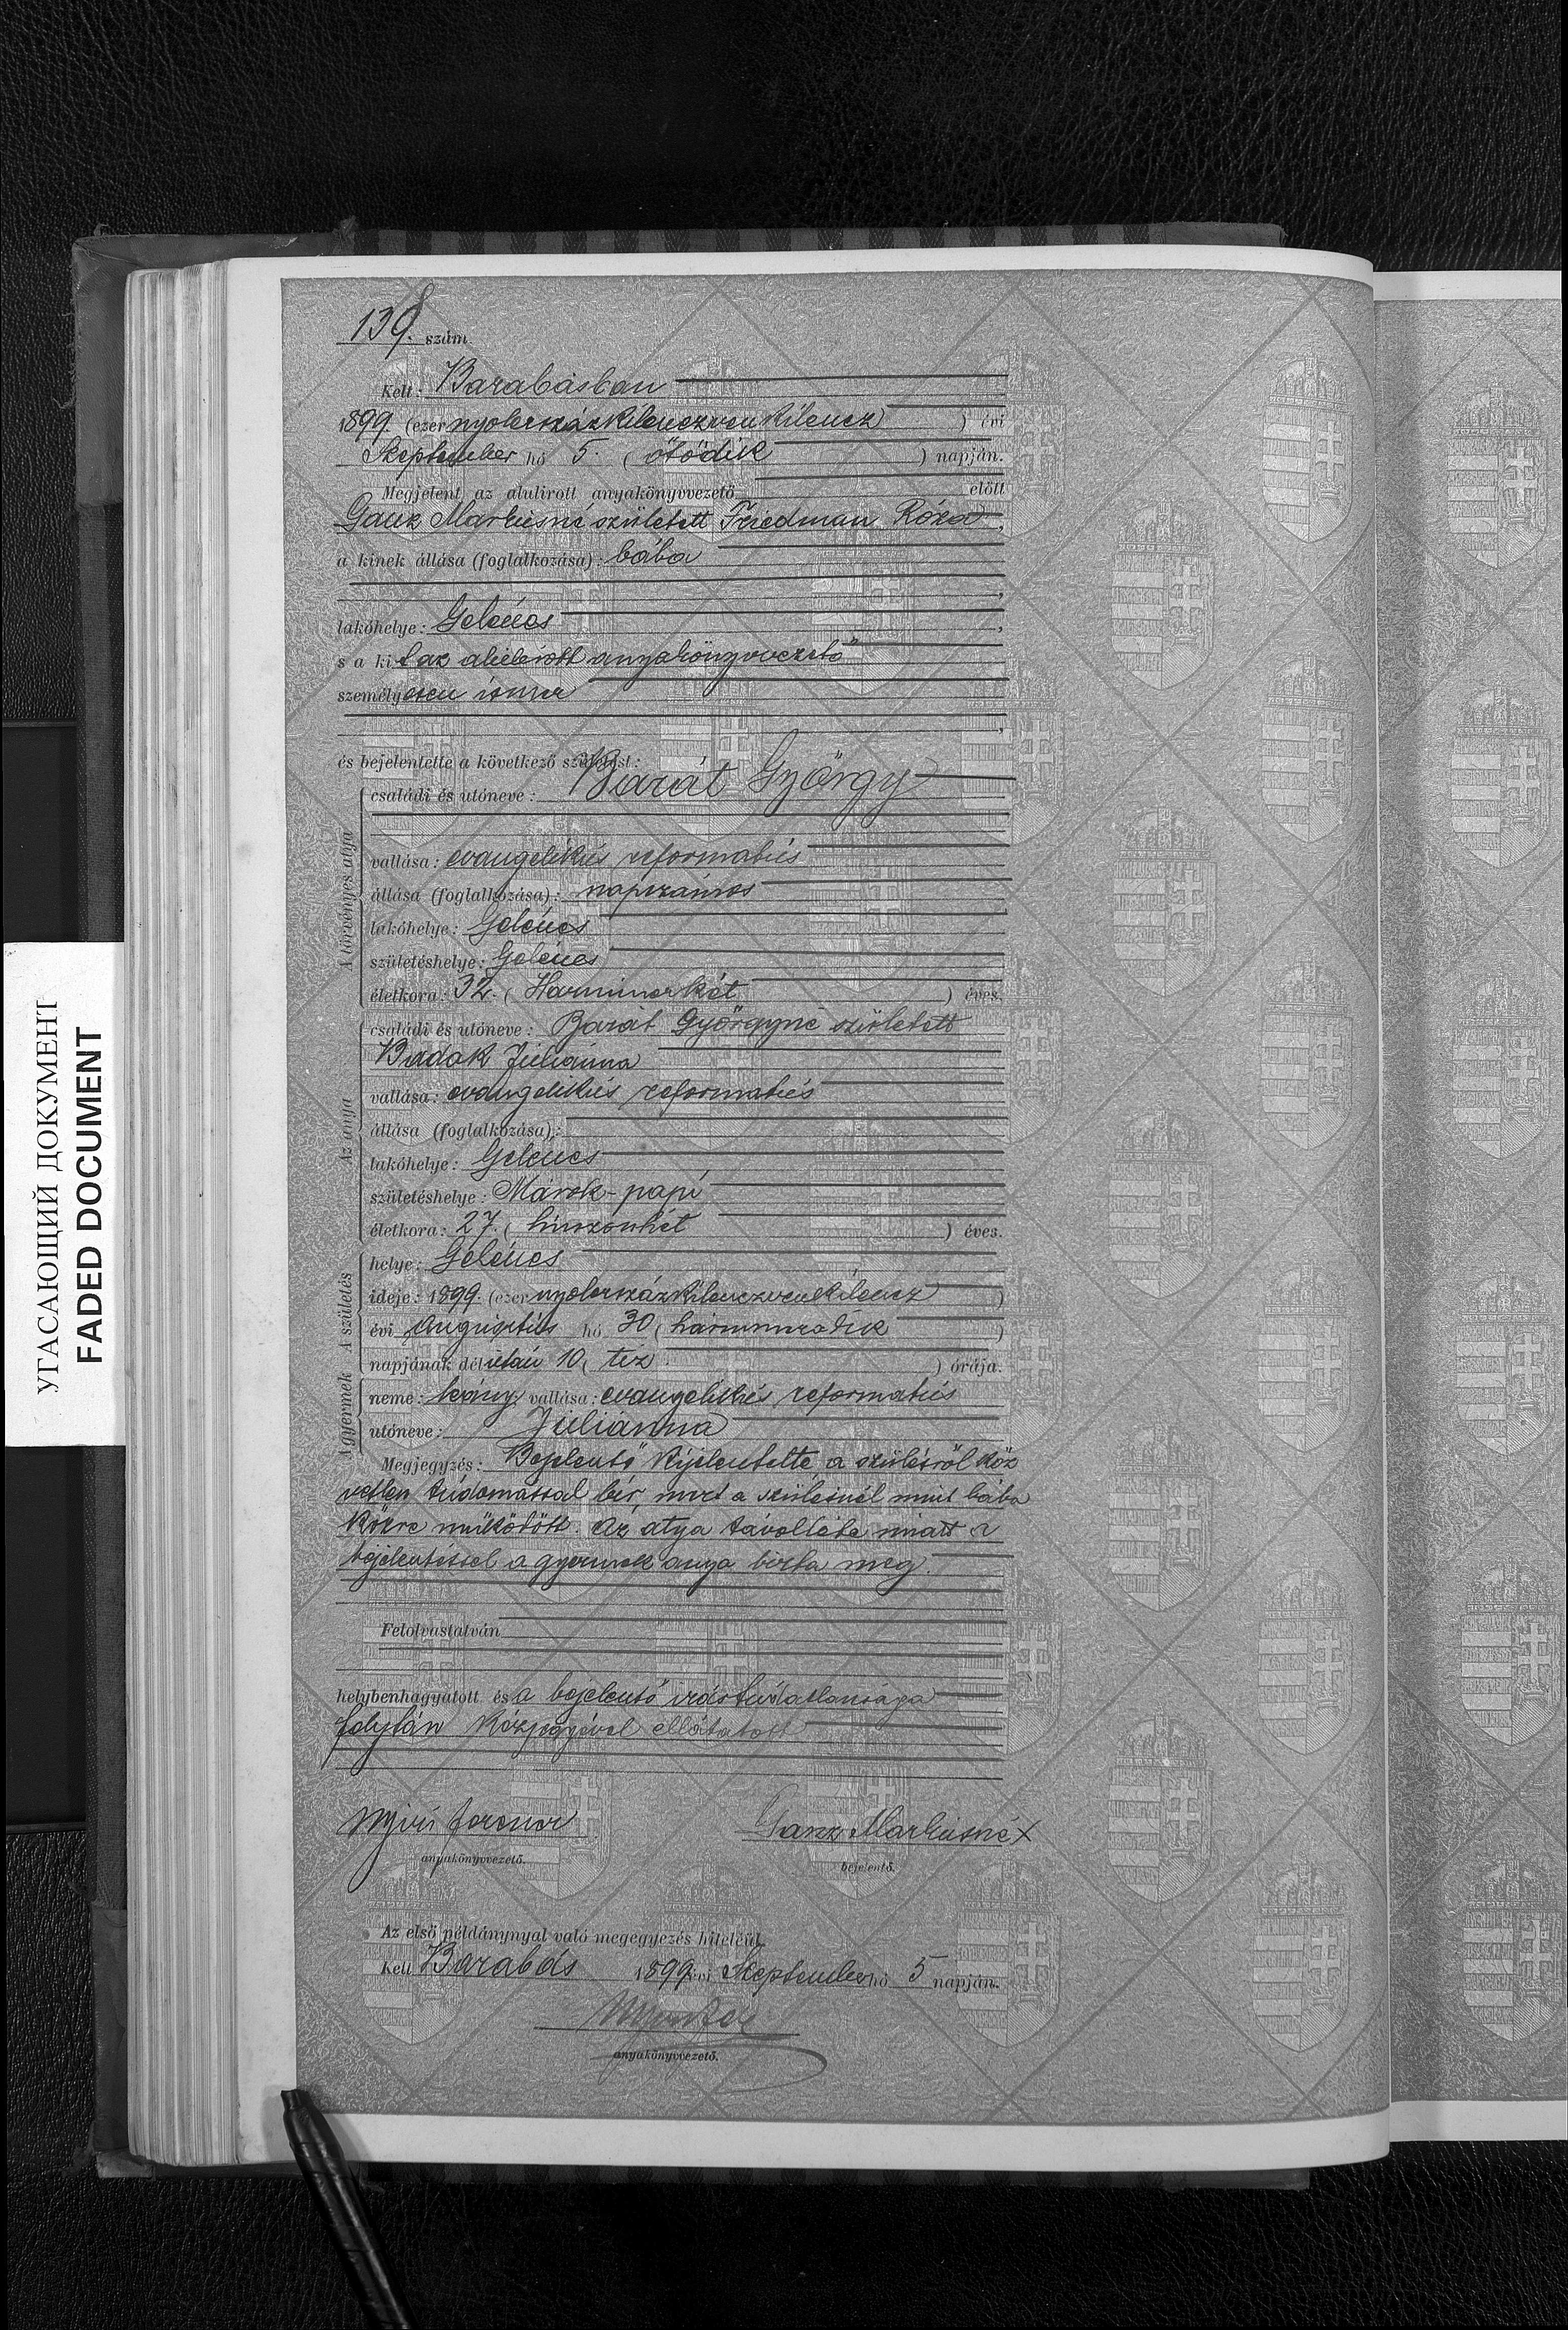 139. szám.
Kelt: Barabásban
1899. (ezernyolcszázkilenczvenkilencz) évi
Szeptember hó 5. (ötödik) napján.
Megjelent az alulirott anyakönyvvezető előtt
Ganz Markusné született Friedman Róza,
a kinek állása (foglalkozása): bába
lakóhelye: Gelénes,
s a kit az alulirott anyakönyvvezető
személyesen ismer
és bejelentette a következő születést:
A törvényes atya
családi és utóneve: Barát György
vallása: evangelikus reformatus
állása (foglalkozása): napszámos
lakóhelye: Gelénes
születéshelye: Gelénes
életkora: 32. (Harminczkét) éves.
Az anya
családi és utóneve: Barát Györgyné született
Budak Juliánna
vallása: evangelikus reformatus
állása (foglalkozása):
lakóhelye: Gelénes
születéshelye: Márok-papi
életkora: 27. (huszonhét) éves.
A születés
helye: Gelénes
ideje: 1899. (ezernyolcszázkilenczvenkilencz)
évi Augusztus hó 30 (harminczadik)
napjának délután 10 (tiz) órája.
A gyermek
neme: leány vallása: evangelikus reformatus
utóneve: Juliánna
Megjegyzés: Bejelentő kijelentette a szülésről köz
vetlen tudomással bir, mert a szülésnél mint bába
közre működött. Az atya távolléte miatt a
bejelentéssel a gyermek anya bizta meg.
Felolvastatván
helybenhagyatott és a bejelentő irástudatlansága
folytán kézjegyével ellátatott
Nyiri Ferencz
Ganz Markusné X
anyakönyvvezető.
bejelentő.
Az első példánynyal való megegyezés hiteléül.
Kelt Barabás 1899 évi Szeptember hó 5 napján.
anyakönyvvezető.
УГАСАЮЩИЙ ДОКУМЕНТ
FADED DOCUMENT